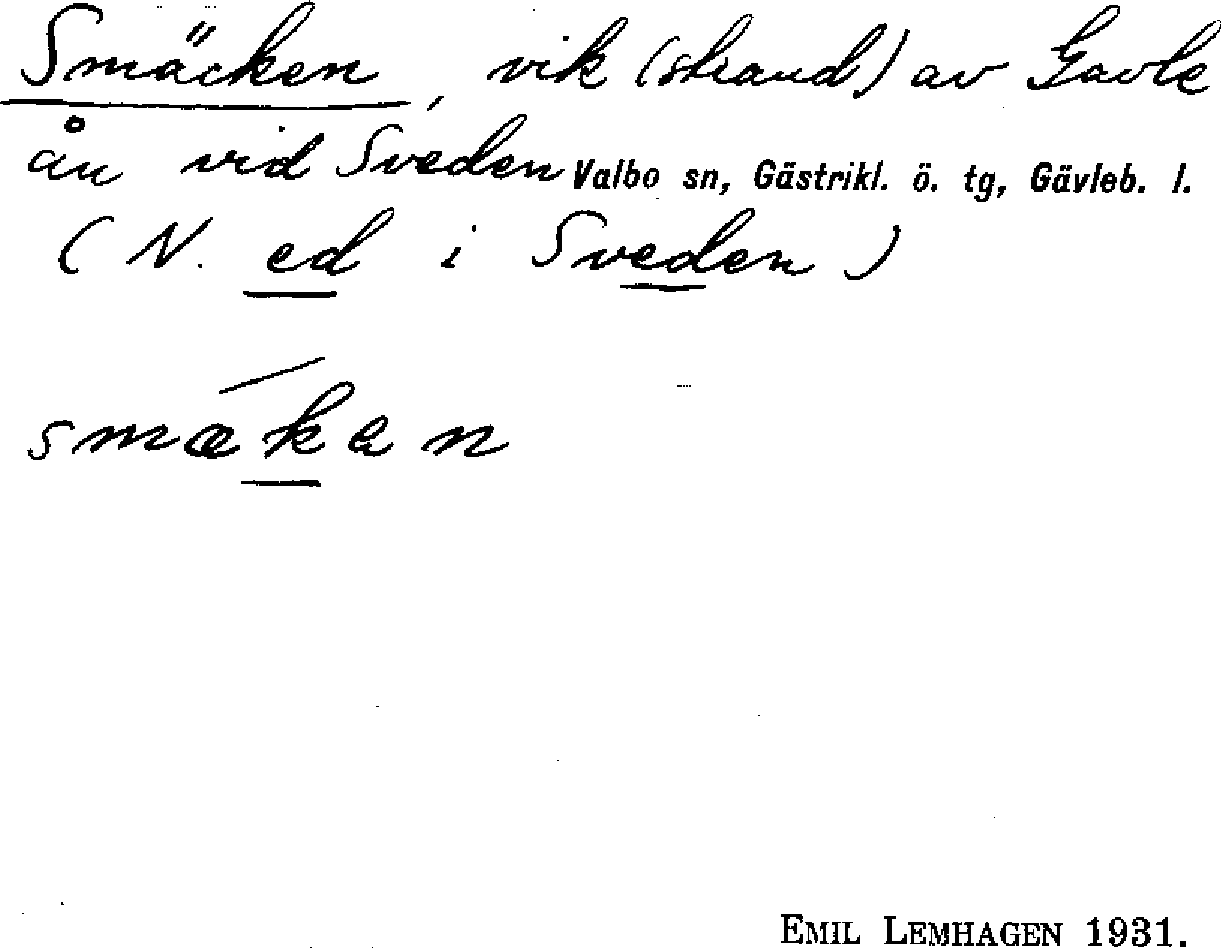 Smäcken, vik (strand) av Gavle
ån vid Sveden Valbo sn, Gästrikl. ö. tg, Gävleb. l.
(N. ed i Sveden)
smækan
EMIL LEMHAGEN 1931.